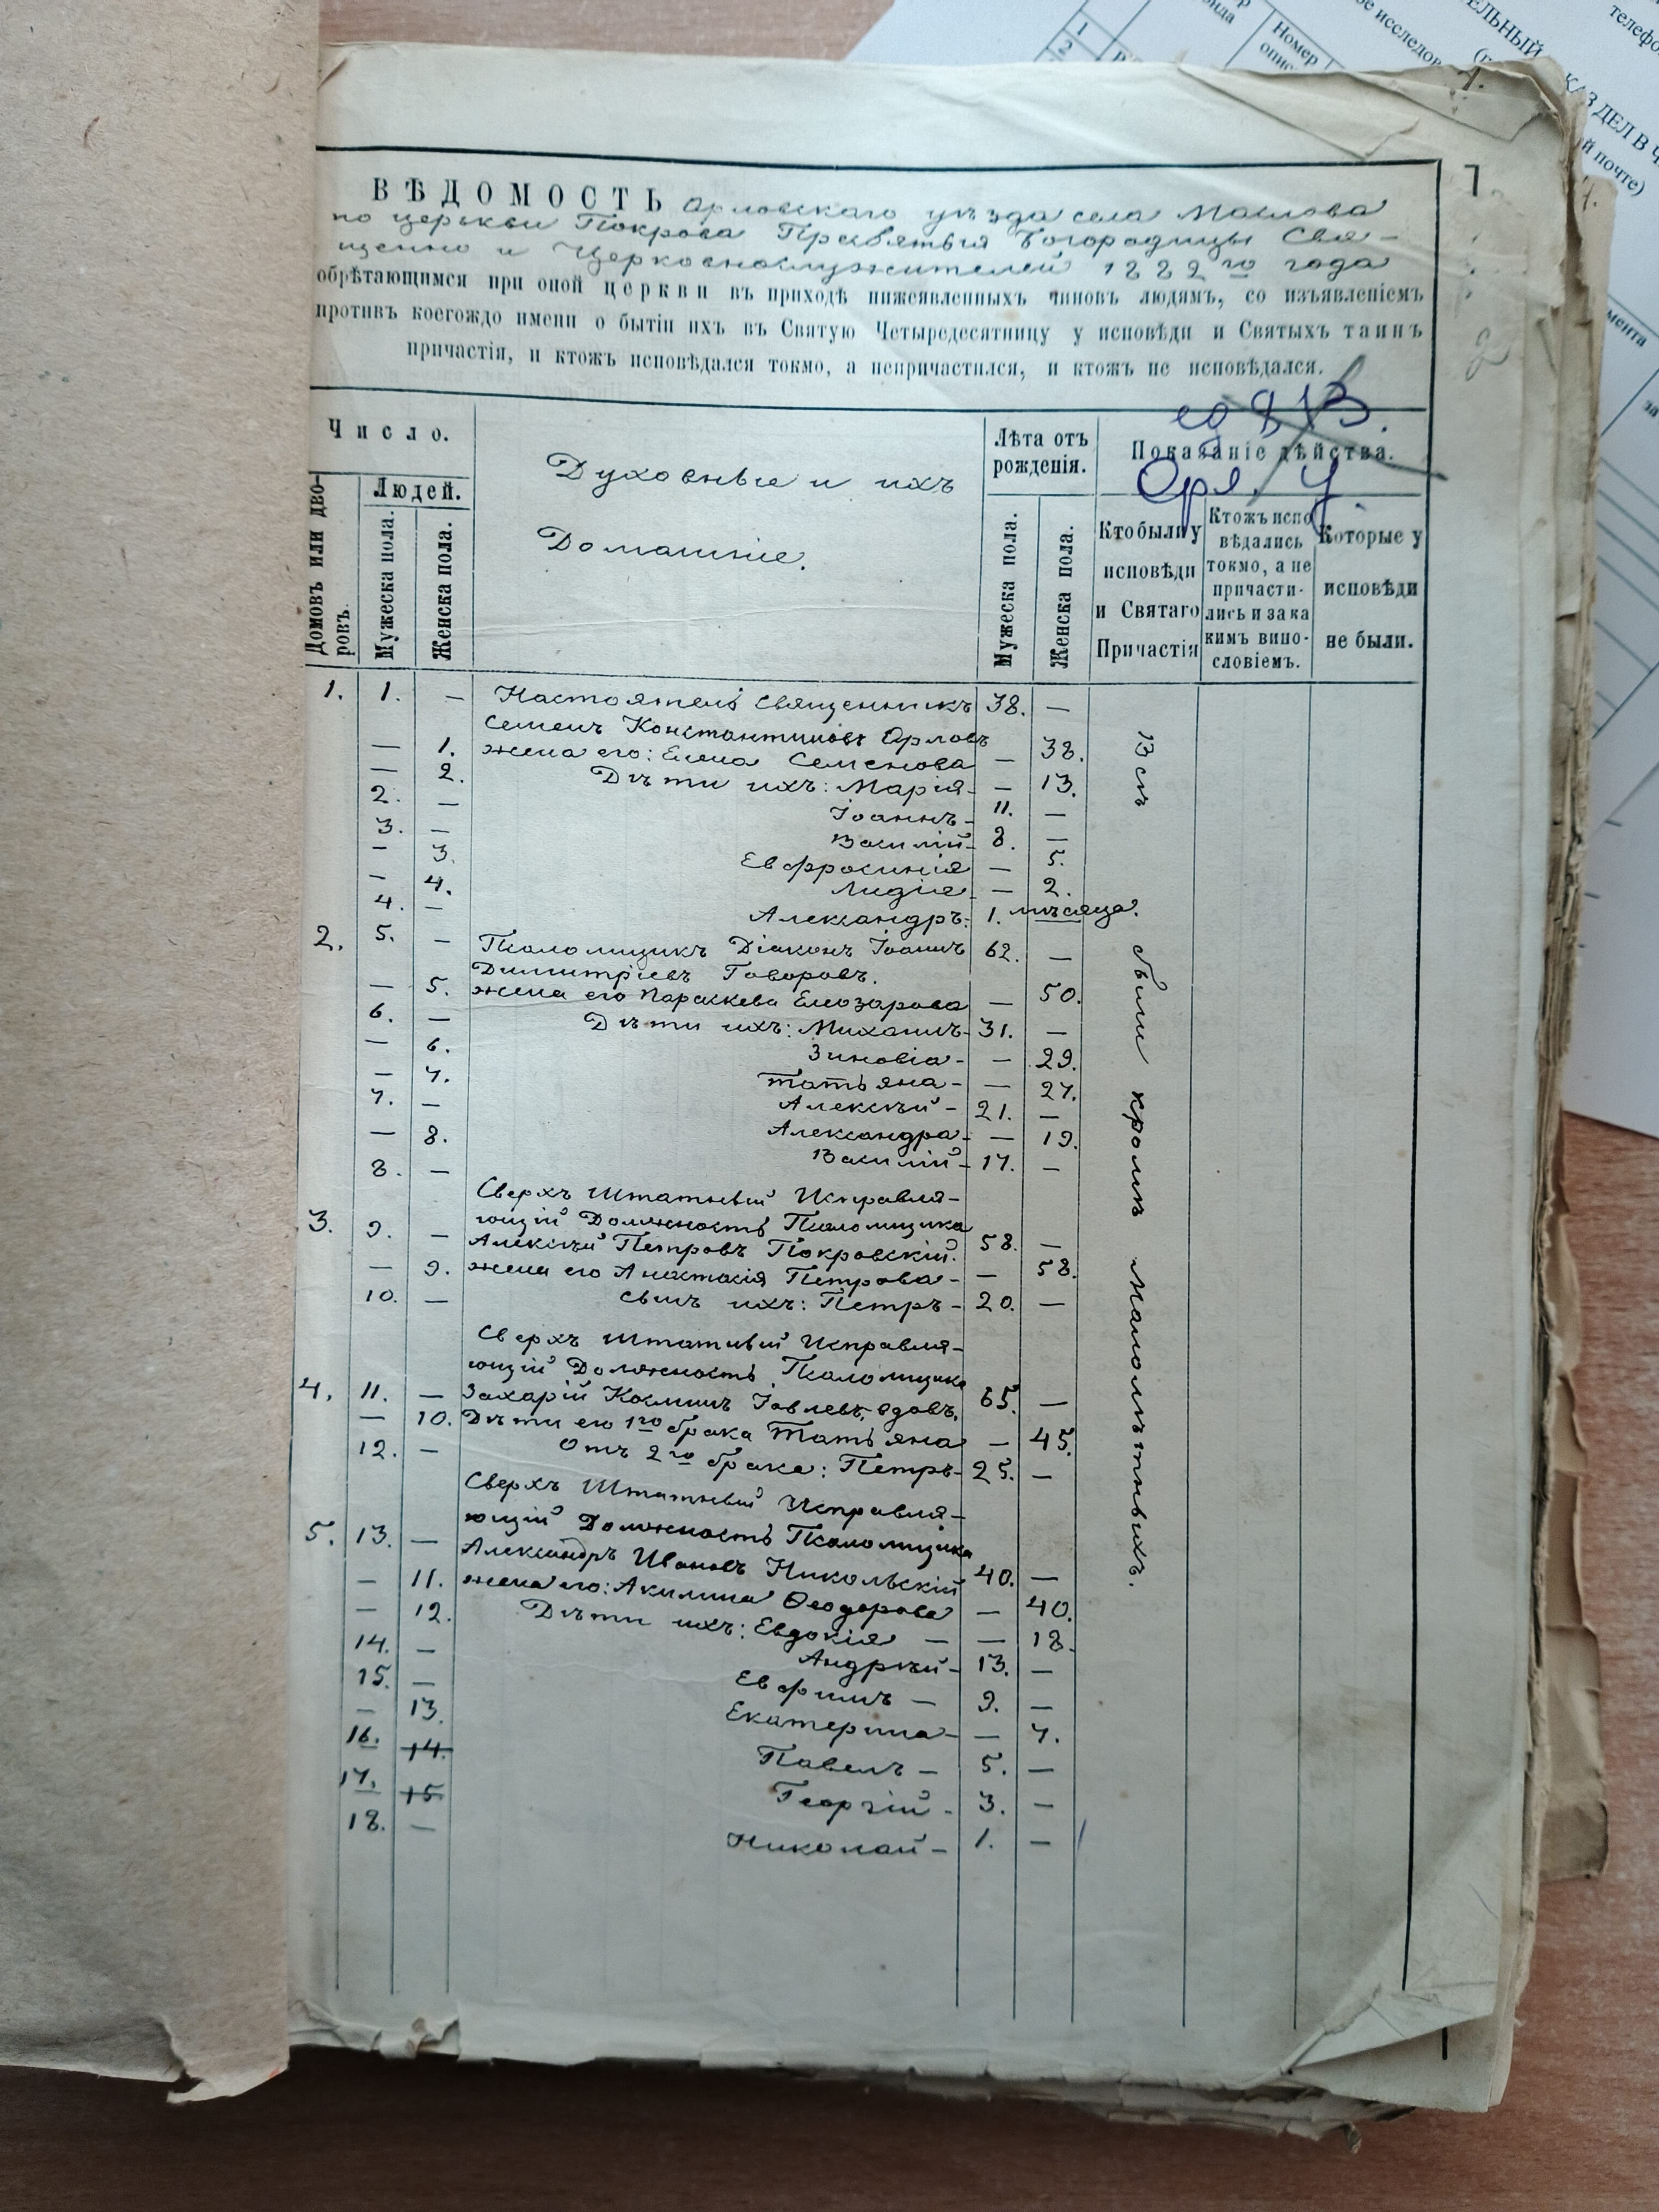 ВѢДОМОСТЬ Орловскаго уѣзда села Маслова
по церкви Покрова Пресвятыя Богородицы Свя-
щенно и Церковнослужителей 1889 го года
обрѣтающимся при оной церкви въ приходѣ нижеявленныхъ чиновъ людямъ, со изъявленіемъ
противъ коегождо имени о бытіи ихъ въ Святую Четыредесятницу у исповѣди и Святыхъ таинъ
причастія, и ктожъ исповѣдался токмо, а непричастился, и ктожъ не исповѣдался.
Число.
Домовъ или дво-
ровъ.
Людей.
Мужеска пола.
Женска пола.
Духовные и ихъ
Домашніе.
Лѣта отъ
рожденія.
Мужеска пола.
Женска пола.
Показаніе дѣйства.
Кто были у
исповѣди
и Святаго
Причастія
Ктожъ испо
вѣдались
токмо, а не
причасти-
лись и за ка
кимъ вино-
словіемъ.
Которые у
исповѣди
не были.
1. 1. — Настоятель Священникъ 38. —
Семенъ Константиновъ Орловъ
— 1. жена его: Елена Семенова — 38.
— 2. Дѣти ихъ: Марія — 13.
2. — Іоаннъ 11. —
3. — Василій 8. —
— 3. Евфросинія — 5.
— 4. Лидія — 2.
4. — Александръ: 1. мѣсяца.
2. 5. — Псаломщикъ Діаконъ Іоаннъ 62. —
Димитріевъ Говоровъ.
— 5. жена его Параскева Елиазарова — 50.
6. — Дѣти ихъ: Михаилъ 31. —
— 6. Зиновіа — 29.
— 7. Татьяна — 27.
7. — Алексѣй 21. —
— 8. Александра — 19.
8. — Василій 17. —
Сверхъ Штатный Исправля-
ющій Должность Псаломщика
3. 9. — Алексѣй Петровъ Покровскій. 58. —
— 9. жена его Анастасія Петрова — 58.
10. — сынъ ихъ: Петръ 20. —
Сверхъ Штатный Исправля-
ющій Должность Псаломщика
4. 11. — Захарій Косминъ Іовлевъ, вдовъ, 65. —
— 10. Дѣти его 1го брака Татьяна — 45.
12. — Отъ 2го брака: Петръ 25. —
Сверхъ Штатный Исправля-
ющій Должность Псаломщика
5. 13. — Александръ Ивановъ Никольскій 40. —
— 11. жена его: Акилина Ѳеодорова — 40.
— 12. Дѣти ихъ: Евдокія — 18.
14. — Андрѣй 13. —
15. — Евфимъ 9. —
— 13. Екатерина — 7.
16. 14. Павелъ 5. —
17. 15. Георгій 3. —
18. — Николай 1. —
Всѣ были кромѣ малолѣтныхъ.